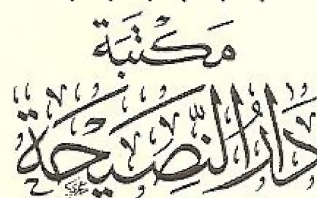 مَكْتَبَة
دَارُ النَّصِيحَة